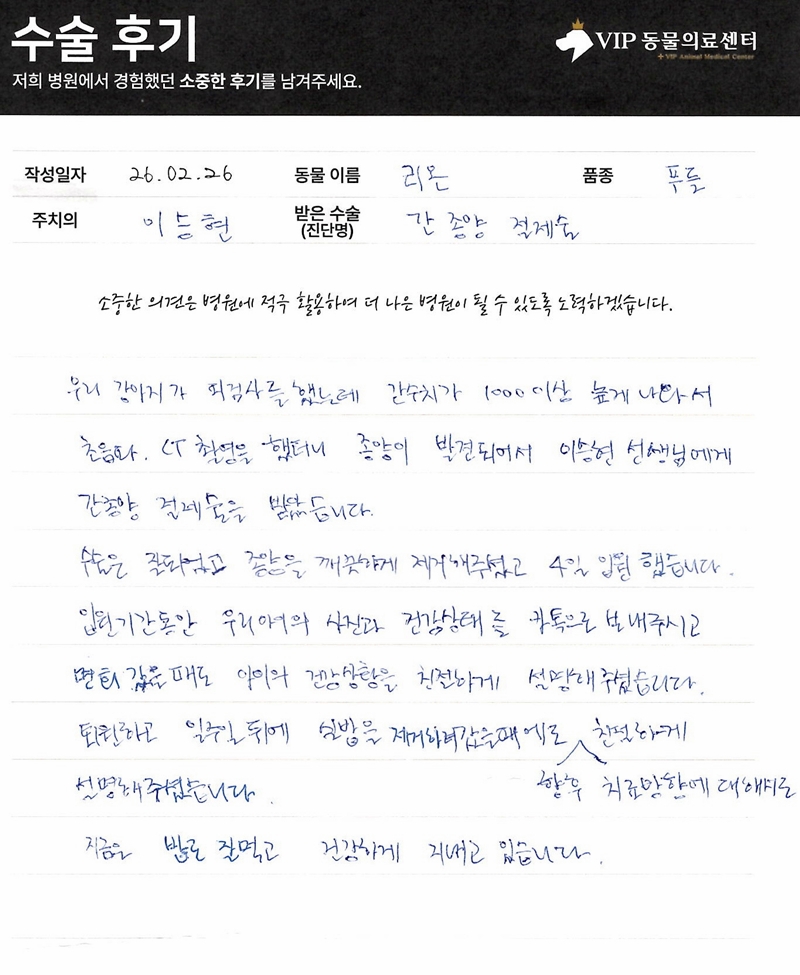 수술 후기
저희 병원에서 경험했던 소중한 후기를 남겨주세요.
VIP 동물의료센터
+ VIP Animal Medical Center
작성일자 26.02.26 동물 이름 리온 품종 푸들
주치의 이승현 받은 수술 (진단명) 간 종양 절제술
소중한 의견은 병원에 적극 활용하여 더 나은 병원이 될 수 있도록 노력하겠습니다.
우리 강아지가 피검사를 했는데 간수치가 1000이상 높게 나와서
초음파. CT 촬영을 했더니 종양이 발견되어서 이승현 선생님에게
간종양 절제술을 받았습니다.
수술은 잘되었고 종양을 깨끗하게 제거해주셨고 4일 입원 했습니다.
입원기간동안 우리아이의 사진과 건강상태를 카톡으로 보내주시고
면회 갔을때도 아이의 건강상황을 친절하게 설명해주셨습니다.
퇴원하고 일주일 뒤에 실밥을 제거하러갔을때에도 친절하게
향후 치료방향에 대해서도
설명해주셨습니다.
지금은 밥도 잘먹고 건강하게 지내고 있습니다.